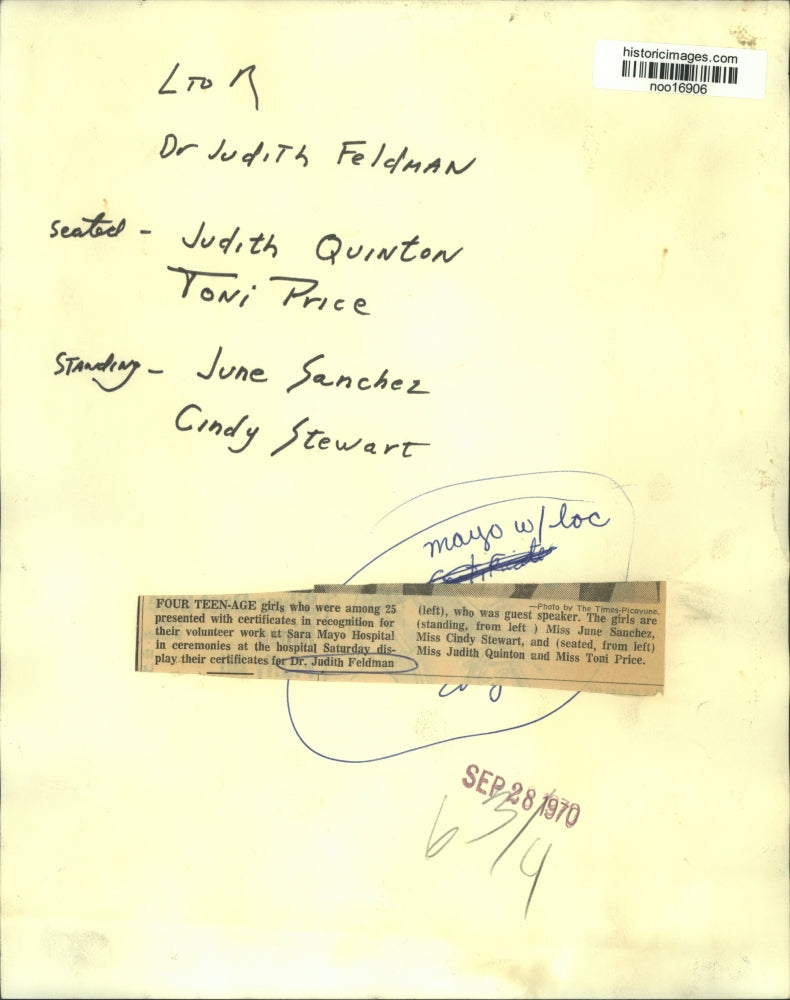 historicimages.com
noo16906
L TO R
Dr Judith Feldman
seated - Judith Quinton
Toni Price
Standing - June Sanchez
Cindy Stewart
mayo w/ loc
FOUR TEEN-AGE girls who were among 25
presented with certificates in recognition for
their volunteer work at Sara Mayo Hospital
in ceremonies at the hospital Saturday dis-
play their certificates for Dr. Judith Feldman
—Photo by The Times-Picayune.
(left), who was guest speaker. The girls are
(standing, from left ) Miss June Sanchez,
Miss Cindy Stewart, and (seated, from left)
Miss Judith Quinton and Miss Toni Price.
SEP 28 1970